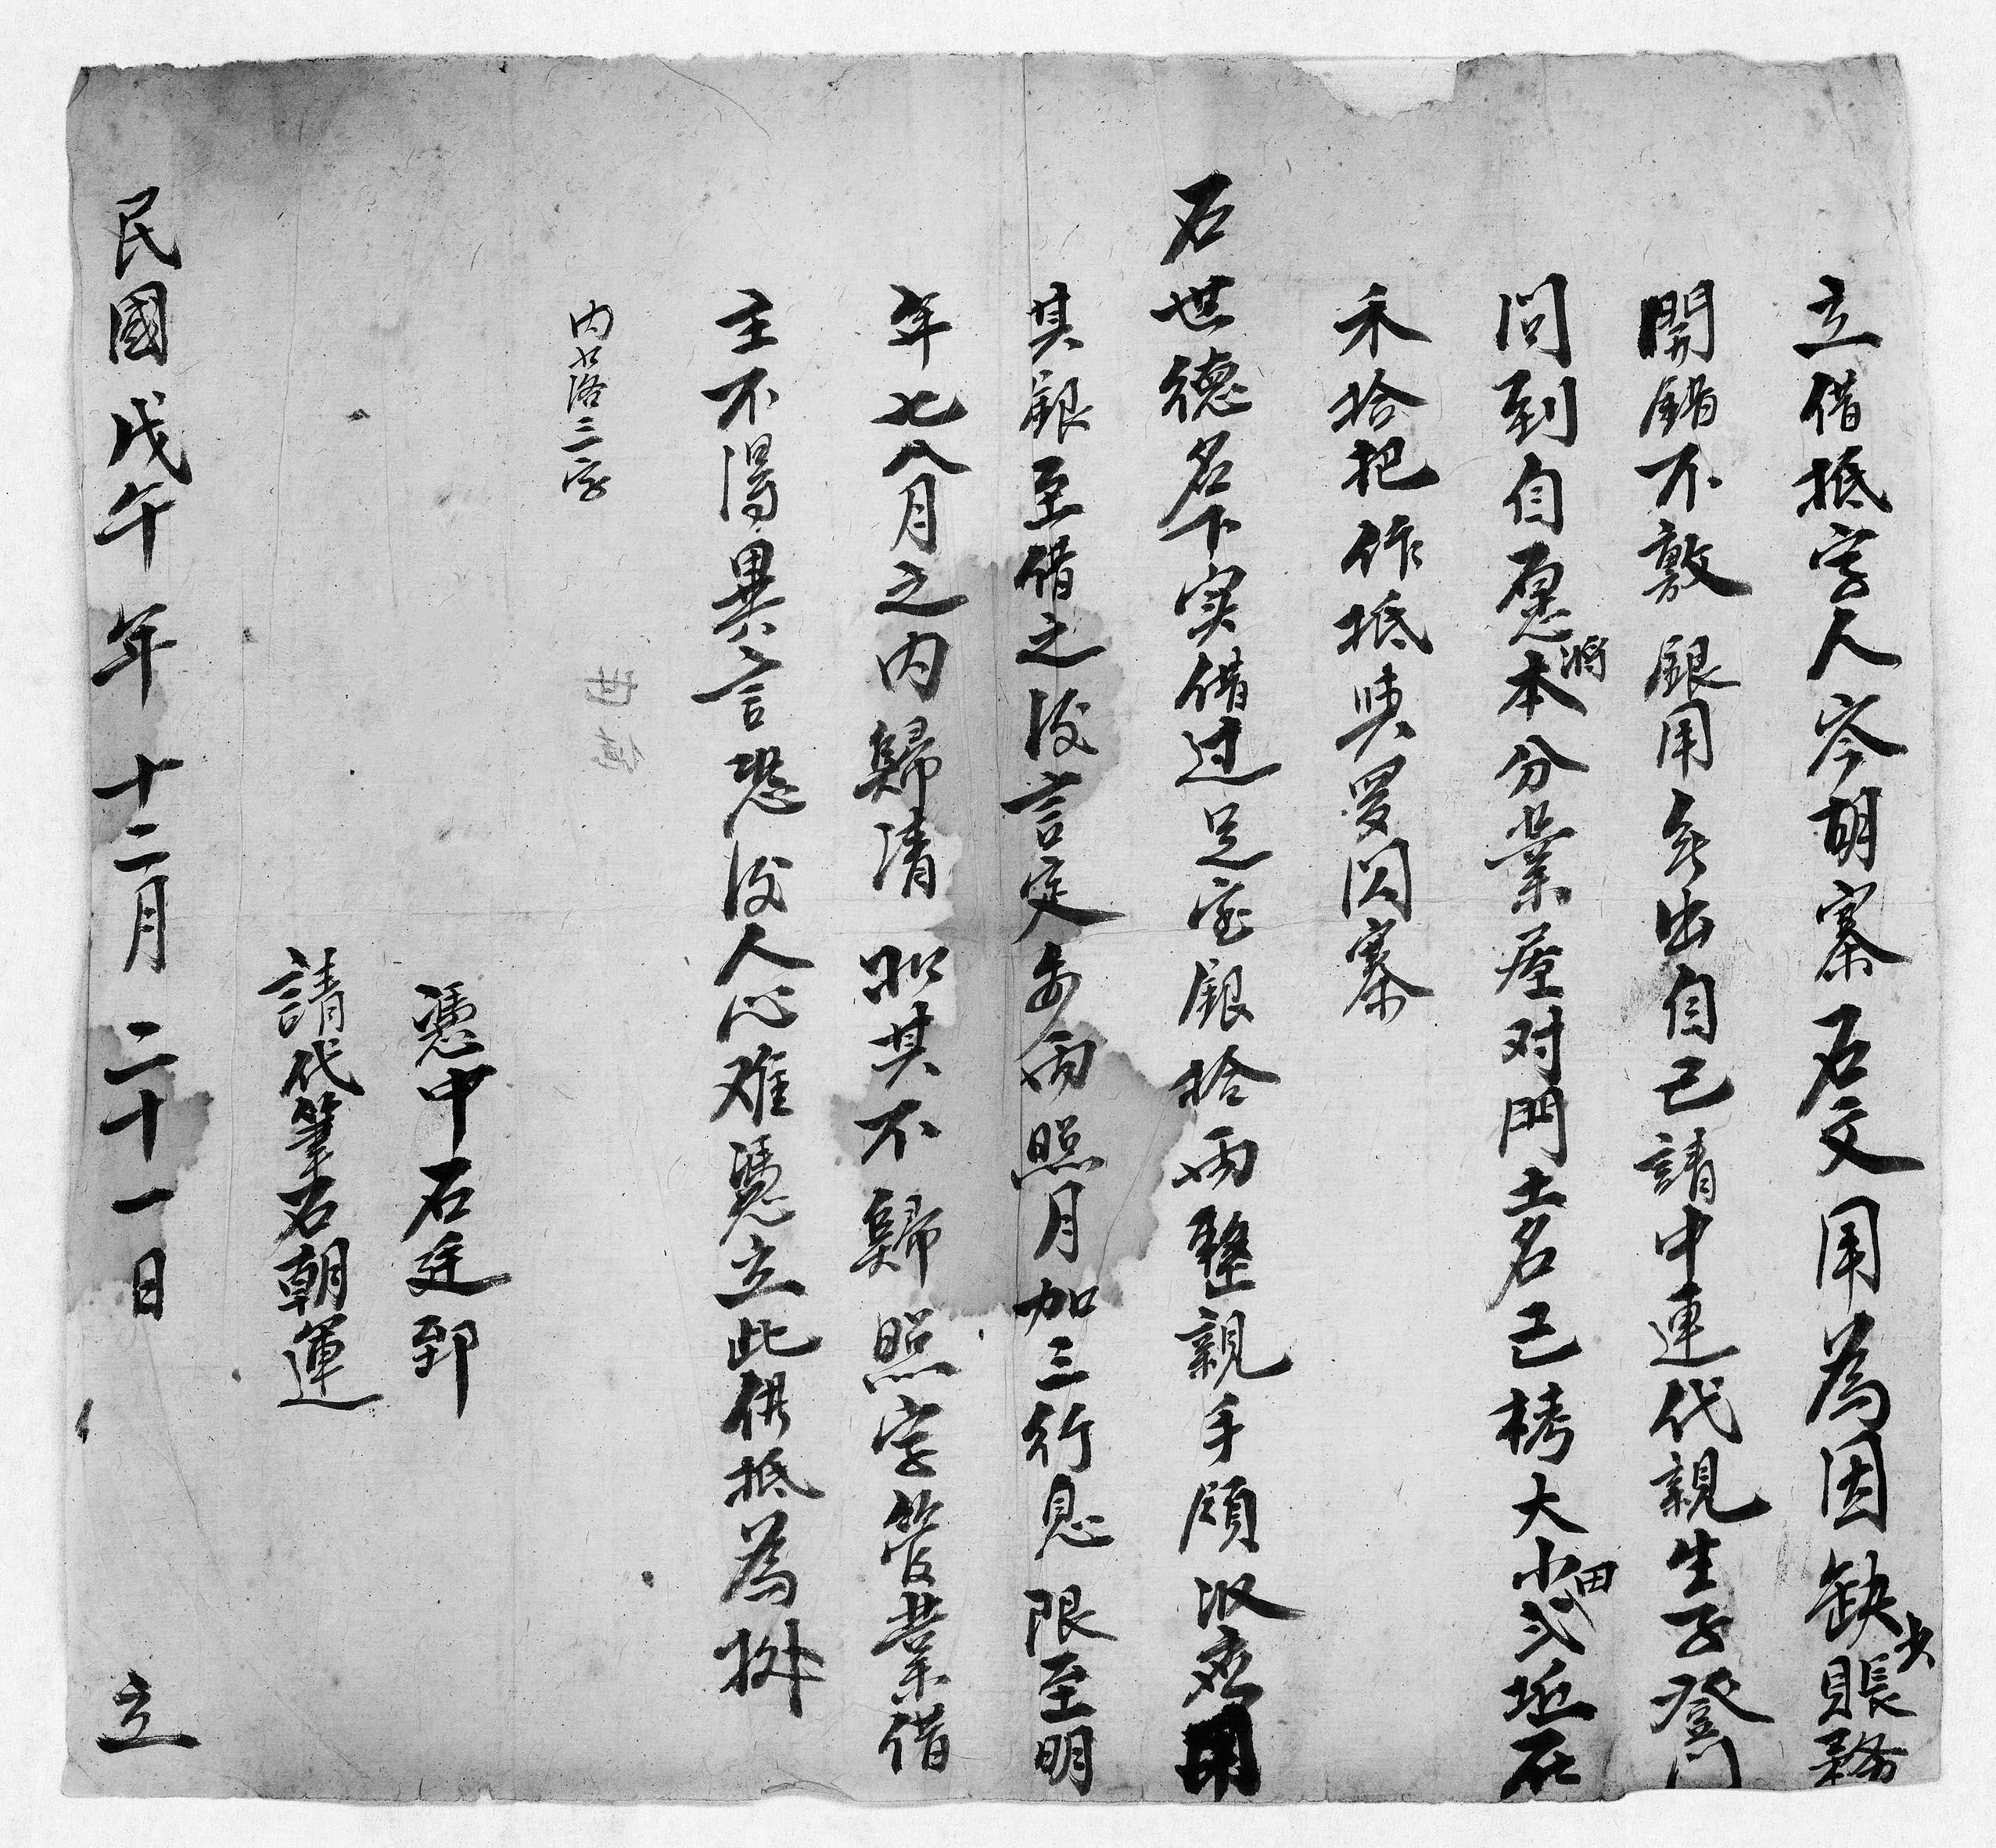 立借抵字人岑胡寨石文用為因缺少賬務
開銷不敷銀用無出自己請中連代親生子登門
問到自愿將本分業產对門土名己栲大小田弍坵在
禾拾把作抵與晏闪寨
石世德名下实借过足宝銀拾两整親手領收忞用
其銀至借之後言定每两照月加三行息限至明
年七八月之内歸清如其不歸照字管業借
主不得異言恐後人心难憑立此借抵為拠
内落三字
憑中石廷郅
請代筆石朝運
民國戊午年十二月二十一日立